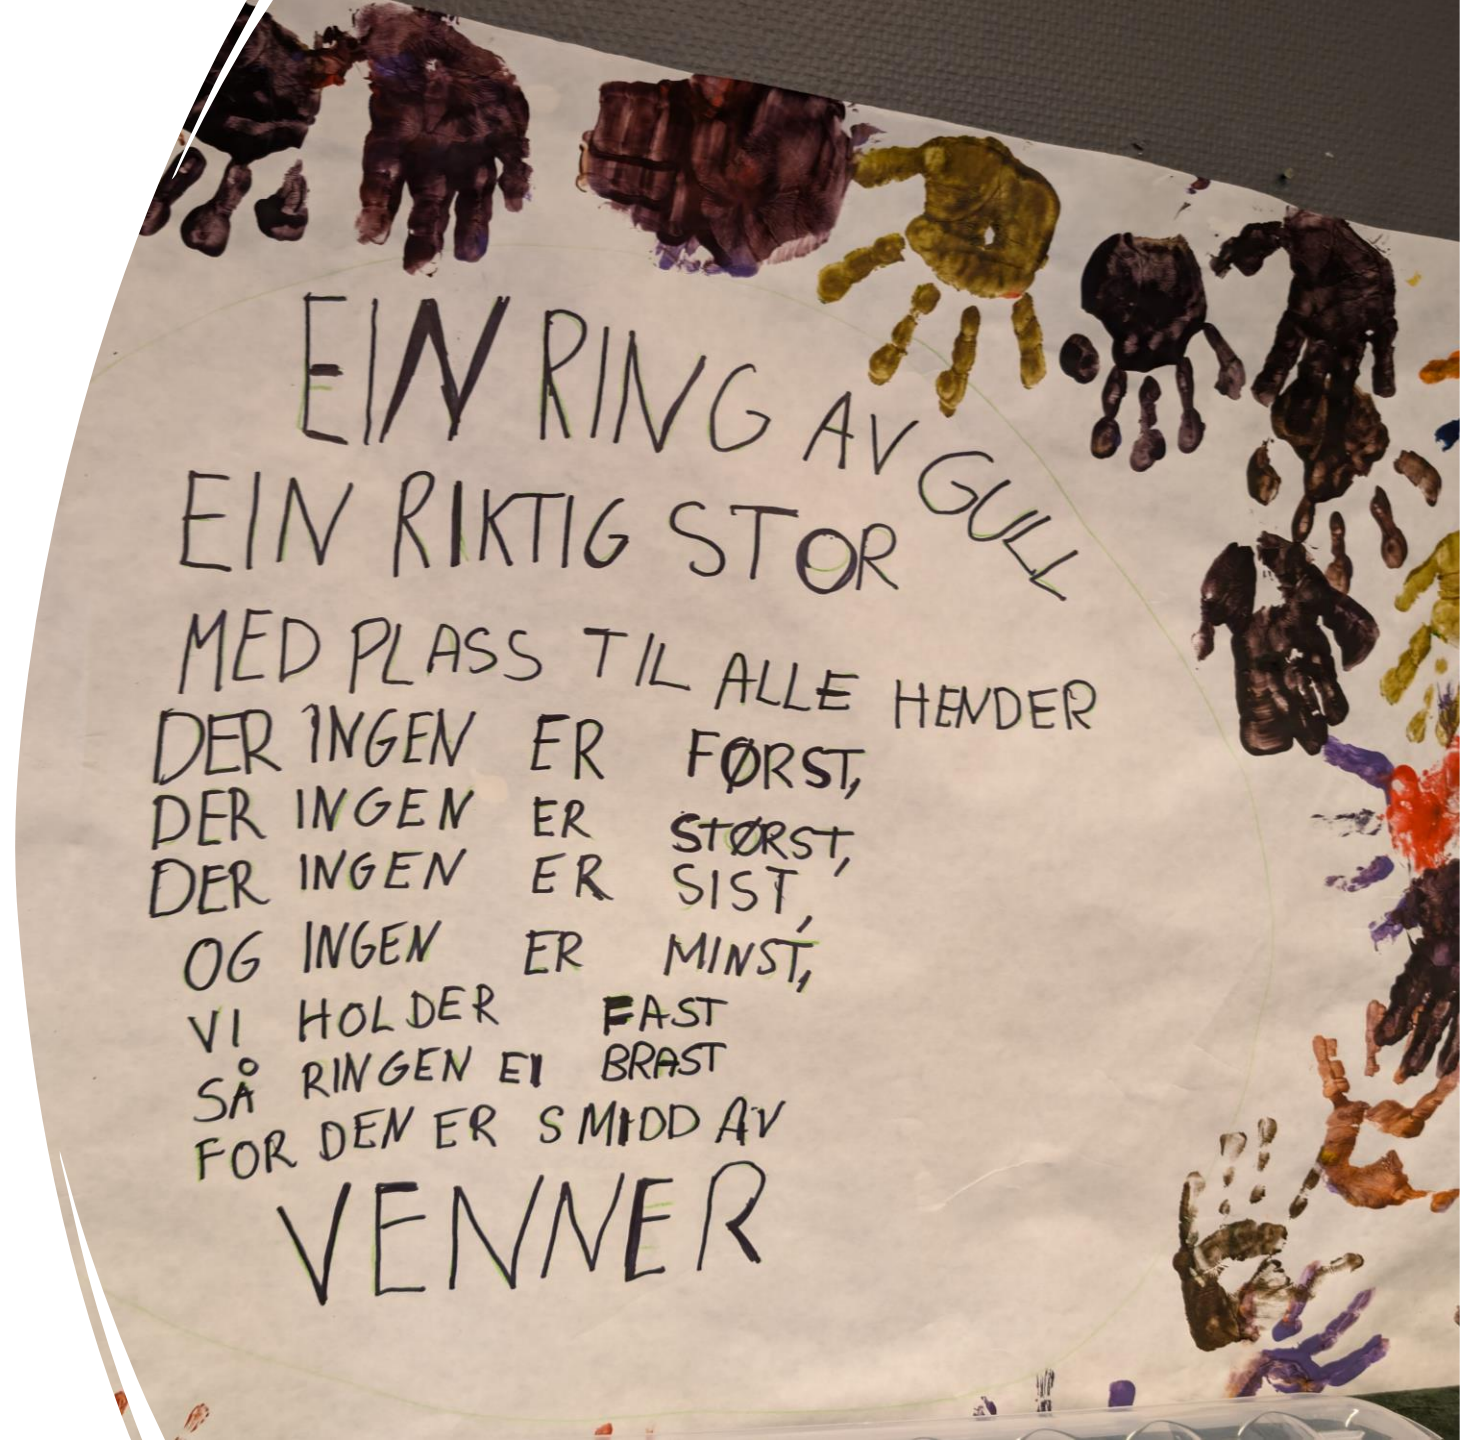 EIN RING AV GULL
EIN RIKTIG STOR
MED PLASS TIL ALLE HENDER
DER INGEN ER FØRST,
DER INGEN ER STØRST,
DER INGEN ER SIST,
OG INGEN ER MINST,
VI HOLDER FAST
SÅ RINGEN EI BRAST
FOR DEN ER SMIDD AV
VENNER